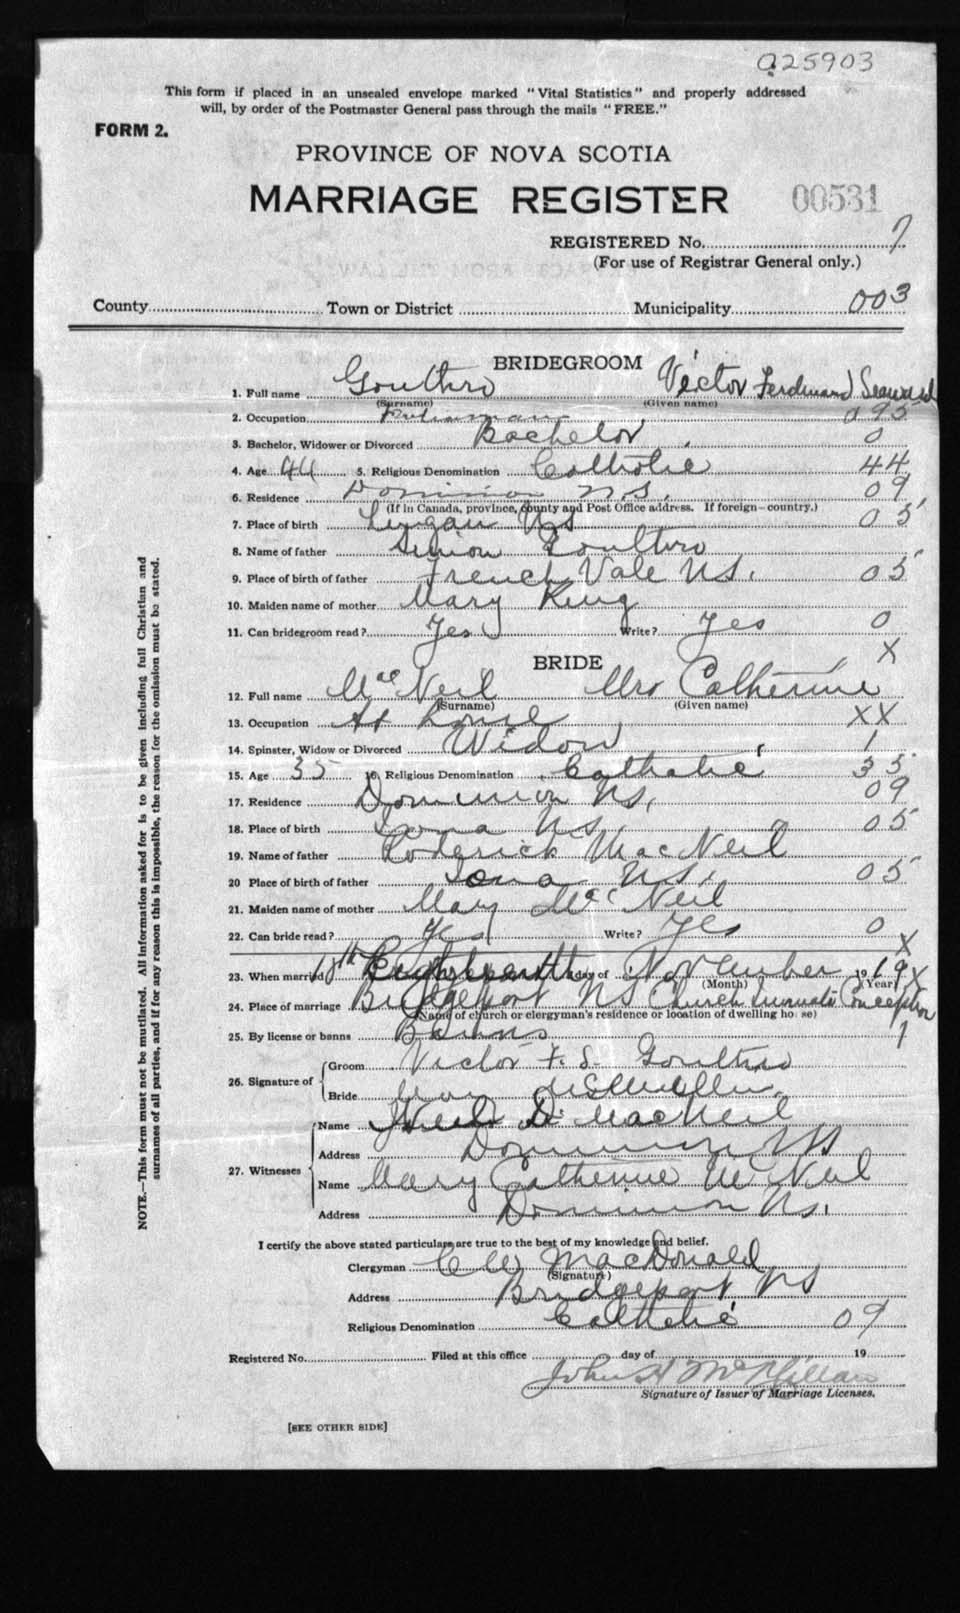 025903
This form if placed in an unsealed envelope marked "Vital Statistics" and properly addressed
will, by order of the Postmaster General pass through the mails "FREE."
FORM 2.
PROVINCE OF NOVA SCOTIA
MARRIAGE REGISTER 00531
REGISTERED No. 7
(For use of Registrar General only.)
County Town or District Municipality 003
BRIDEGROOM
1. Full name Gouthro Victor Ferdinand
(Surname) (Given name)
2. Occupation Policeman 095
3. Bachelor, Widower or Divorced Bachelor 0
4. Age 44 5. Religious Denomination Catholic 44
6. Residence Dominion N.S. 09
(If in Canada, province, county and Post Office address. If foreign—country.)
7. Place of birth Lingan NS 05
8. Name of father Simon Gouthro
9. Place of birth of father French Vale NS. 05
10. Maiden name of mother Mary King
11. Can bridegroom read? Yes Write? Yes 0
X
BRIDE
12. Full name MacNeil Mrs Catherine
(Surname) (Given name)
13. Occupation At home XX
14. Spinster, Widow or Divorced Widow 1
15. Age 35 16. Religious Denomination Catholic 35
17. Residence Dominion NS. 09
18. Place of birth Iona NS 05
19. Name of father Roderick MacNeil
20 Place of birth of father Iona NS. 05
21. Maiden name of mother Mary McNeil
22. Can bride read? Yes Write? Yes 0
X
23. When married 18th Eighteenth day of November 1919 X
(Month) (Year)
24. Place of marriage Bridgeport NS Church Immaculate Conception
(Name of church or clergyman's residence or location of dwelling house)
25. By license or banns Banns 1
26. Signature of Groom Victor F. S. Gouthro
Bride
27. Witnesses
Name D. MacNeil
Address Dominion NS
Name Mary Catherine McNeil
Address Dominion NS.
I certify the above stated particulars are true to the best of my knowledge and belief.
Clergyman C W MacDonald
(Signature)
Address Bridgeport NS
Religious Denomination Catholic 09
Registered No. Filed at this office day of 19
John A McMillan
Signature of Issuer of Marriage Licenses.
[SEE OTHER SIDE]
NOTE.—This form must not be mutilated. All information asked for is to be given including full Christian and
surnames of all parties, and if for any reason this is impossible, the reason for the omission must be stated.